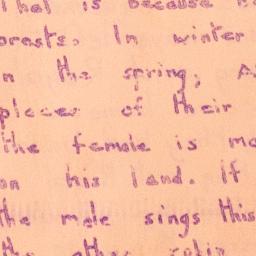 that is because
orests. In winter
n the spring,
pieces of their
the female is mo
on his land. If
the male sings this
the other